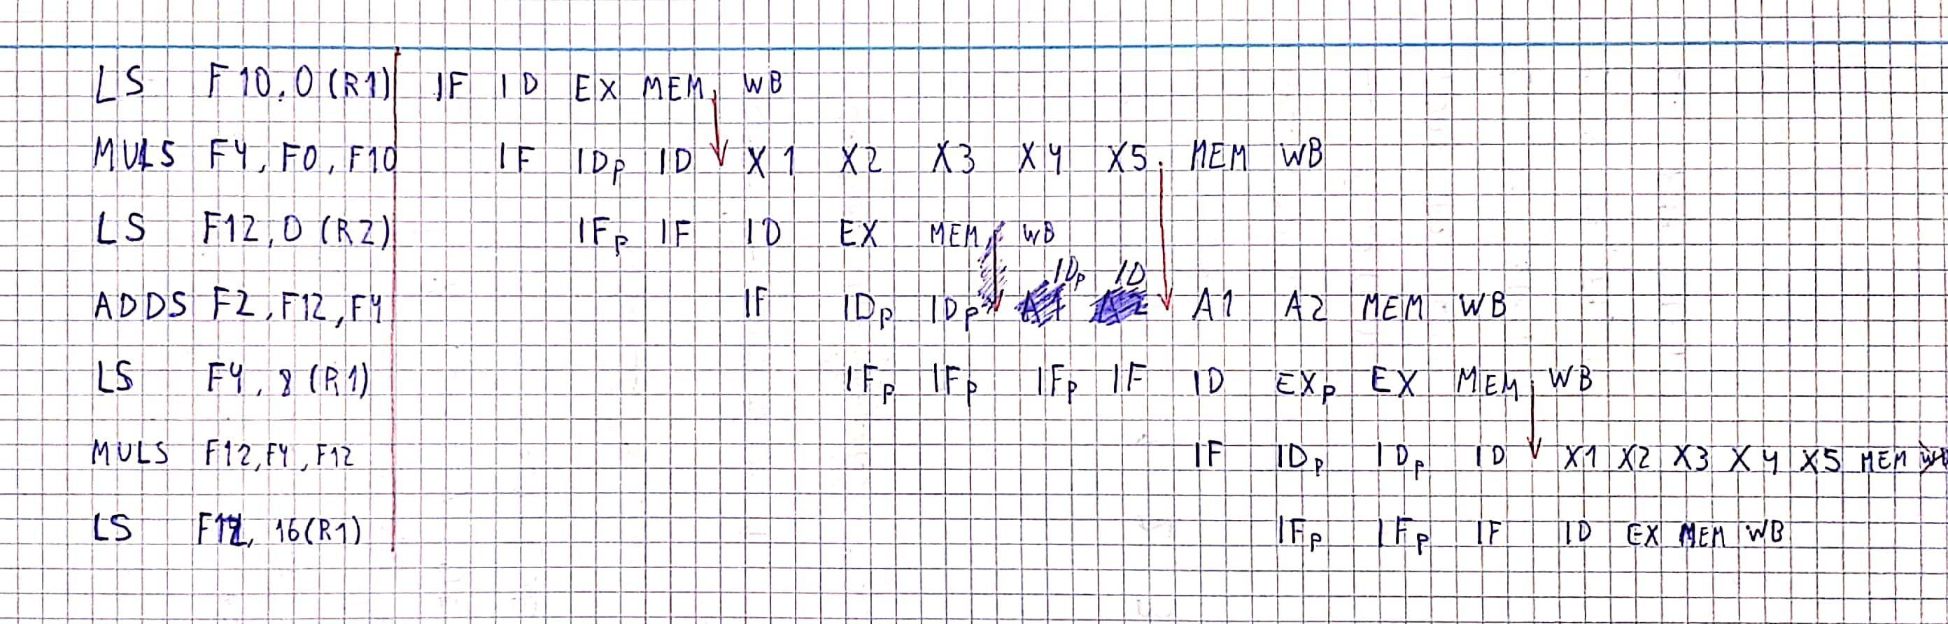 LS F10,0(R1) IF ID EX MEM WB
MULS F4, F0, F10 IF IDp ID X1 X2 X3 X4 X5 MEM WB
LS F12,0 (R2) IFp IF ID EX MEM WB
IDp ID
ADDS F2, F12, F4 IF IDp IDp A1 A2 A1 A2 MEM WB
LS F4, 8(R1) IFp IFp IFp IF ID EXp EX MEM WB
MULS F12, F4, F12 IF IDp IDp ID X1 X2 X3 X4 X5 MEM WB
LS 16(R1) IFp IFp IF ID EX MEM WB